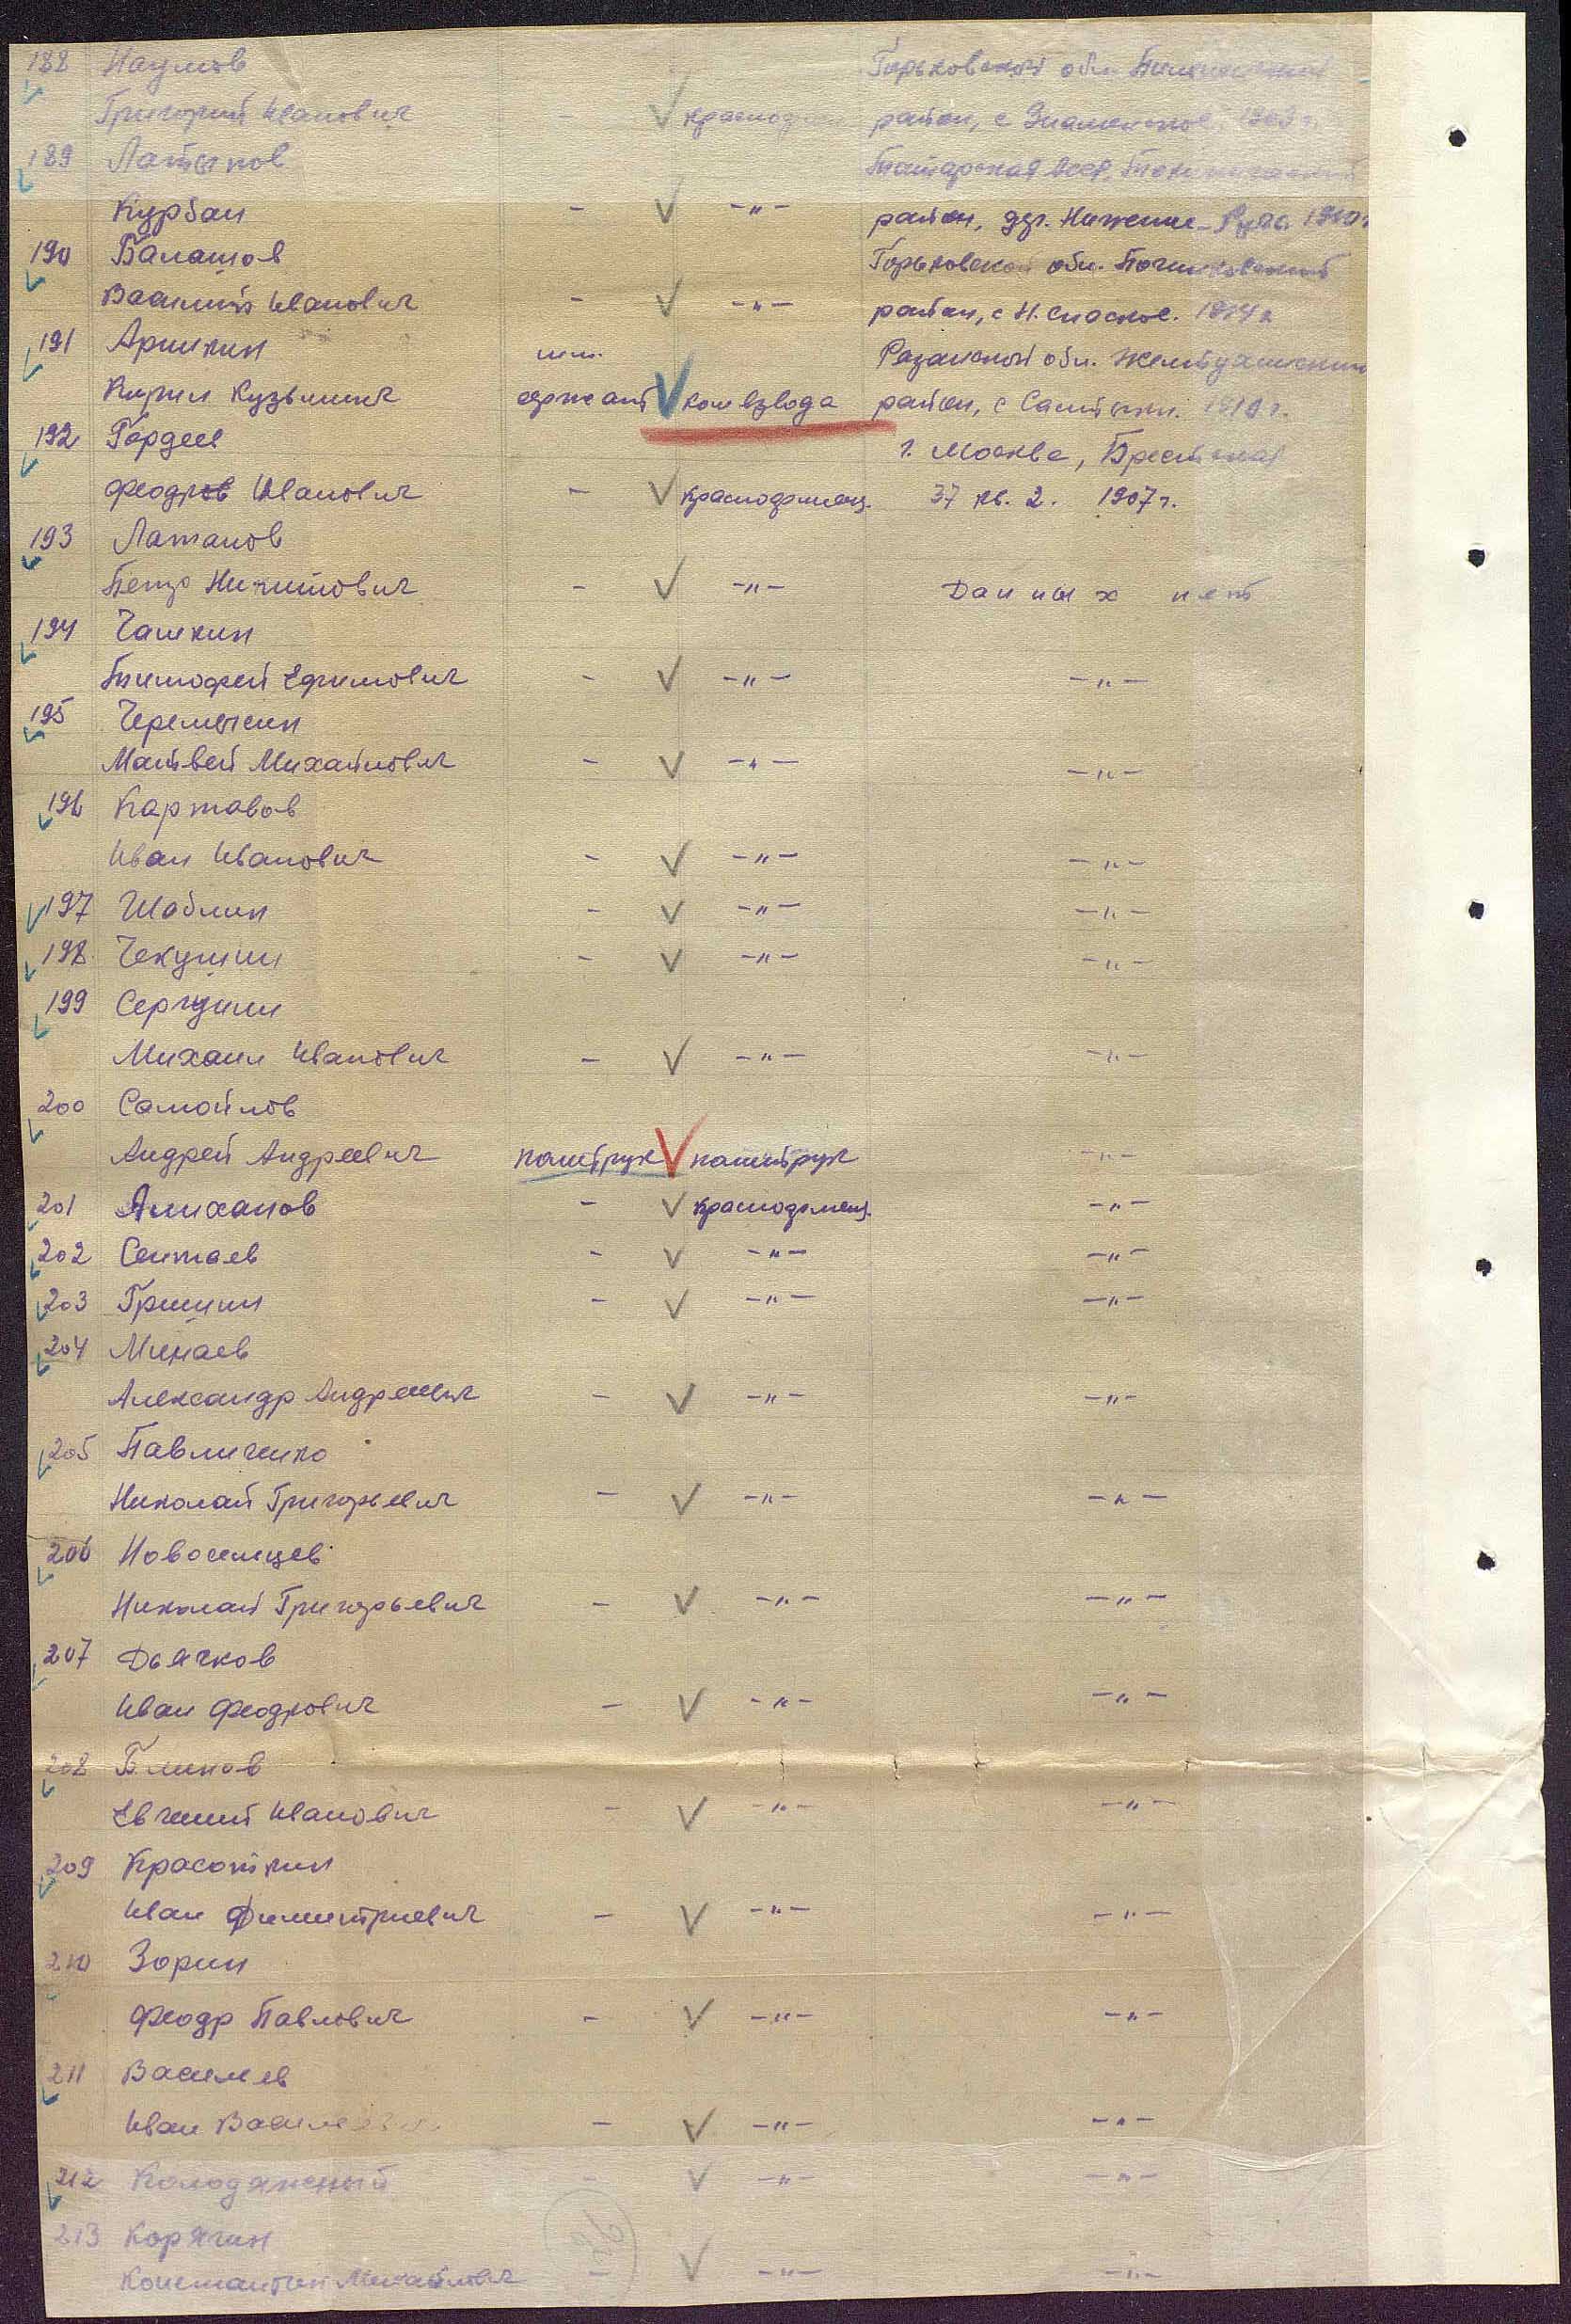 188 Наумов Горьковской обл.
Григорий Иванович - красноарм район, с Знаменское. 1909 г.
189 Латыпов Татарская АССР,
Курбан - -"- район, дер. Нижние 1910г
190 Балашов Горьковской обл. Починковский
Василий Иванович - -"- район, с Н. Спаское. 1914 г
191 Аришкин мл. Рязанской обл. Желтухинский
Кирил Кузьмич сержант ком взвода район, с 1910 г.
192 Гордеев г. Москва, Брестская
Феодров Иванович - красноармеец. 37 кв. 2. 1907 г.
193 Латанов
Петр Никитович - -"- Данных нет
194 Чашкин
Тимофей Ефимович - -"- -"-
195 Черемыкин
Матвей Михайлович - -"- -"-
196 Картавов
Иван Иванович - -"- -"-
197 Шаблин - -"- -"-
198 Чекушин - -"- -"-
199 Сергушин
Михаил Иванович - -"- -"-
200 Самойлов
Андрей Андреевич политрук политрук -"-
201 Алиханов - красноармеец. -"-
202 Сентаев - -"- -"-
203 Гришин - -"- -"-
204 Минаев
Александр Андреевич - -"- -"-
205 Павличенко
Николай Григорьевич - -"- -"-
206 Новосельцев
Николай Григорьевич - -"- -"-
207 Дьячков
Иван Феодрович - -"- -"-
208 Блинов
Евгений Иванович - -"- -"-
209 Красоткин
Иван Димитриевич - -"- -"-
210 Зорин
Феодр Павлович - -"- -"-
211 Василев
Иван - -"- -"-
212 Колодяжный - -"- -"-
213 Корягин
Константин Михайлович - -"- -"-